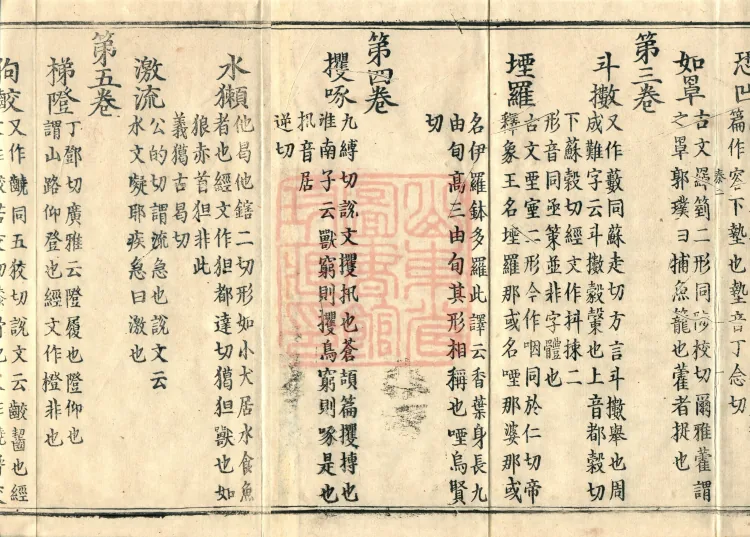 恐凹篇作容下墊也墊音丁念切
第三卷
如罩古文䍜箌二形同陟校切爾雅藋謂
之罩郭璞曰捕魚籠也藋者捉也
斗擻又作藪同蘇走切方言斗擻舉也周
成難字云斗擻㲉𣫏也上音都㲉切
下蘇㲉切經文作抖揀二
形音同亟策並非字體也
堙羅古文垔𡫟二形今作咽同於仁切帝
釋象王名堙羅那或名哩那婆那或
名伊羅鉢多羅此譯云香葉身長九
由旬高三由旬其形相稱也哩烏賢
切
第四卷
攫啄九縛切說文攫扟也蒼頡篇攫搏也
淮南子云獸窮則攫鳥窮則啄是也
扟音居
逆切
水獺他曷他鎋二切形如小犬居水食魚
者也經文作狚都達切獦狚獸也如
狼赤首狚非此
義獦古曷切
激流公的切謂流急也說文云
水文礙耶疾急曰激也
第五卷
梯隥丁鄧切廣雅云隥履也隥仰也
謂山路仰登也經文作橙非也
狗齩又作䶧同五狡切說文云齩齧也經